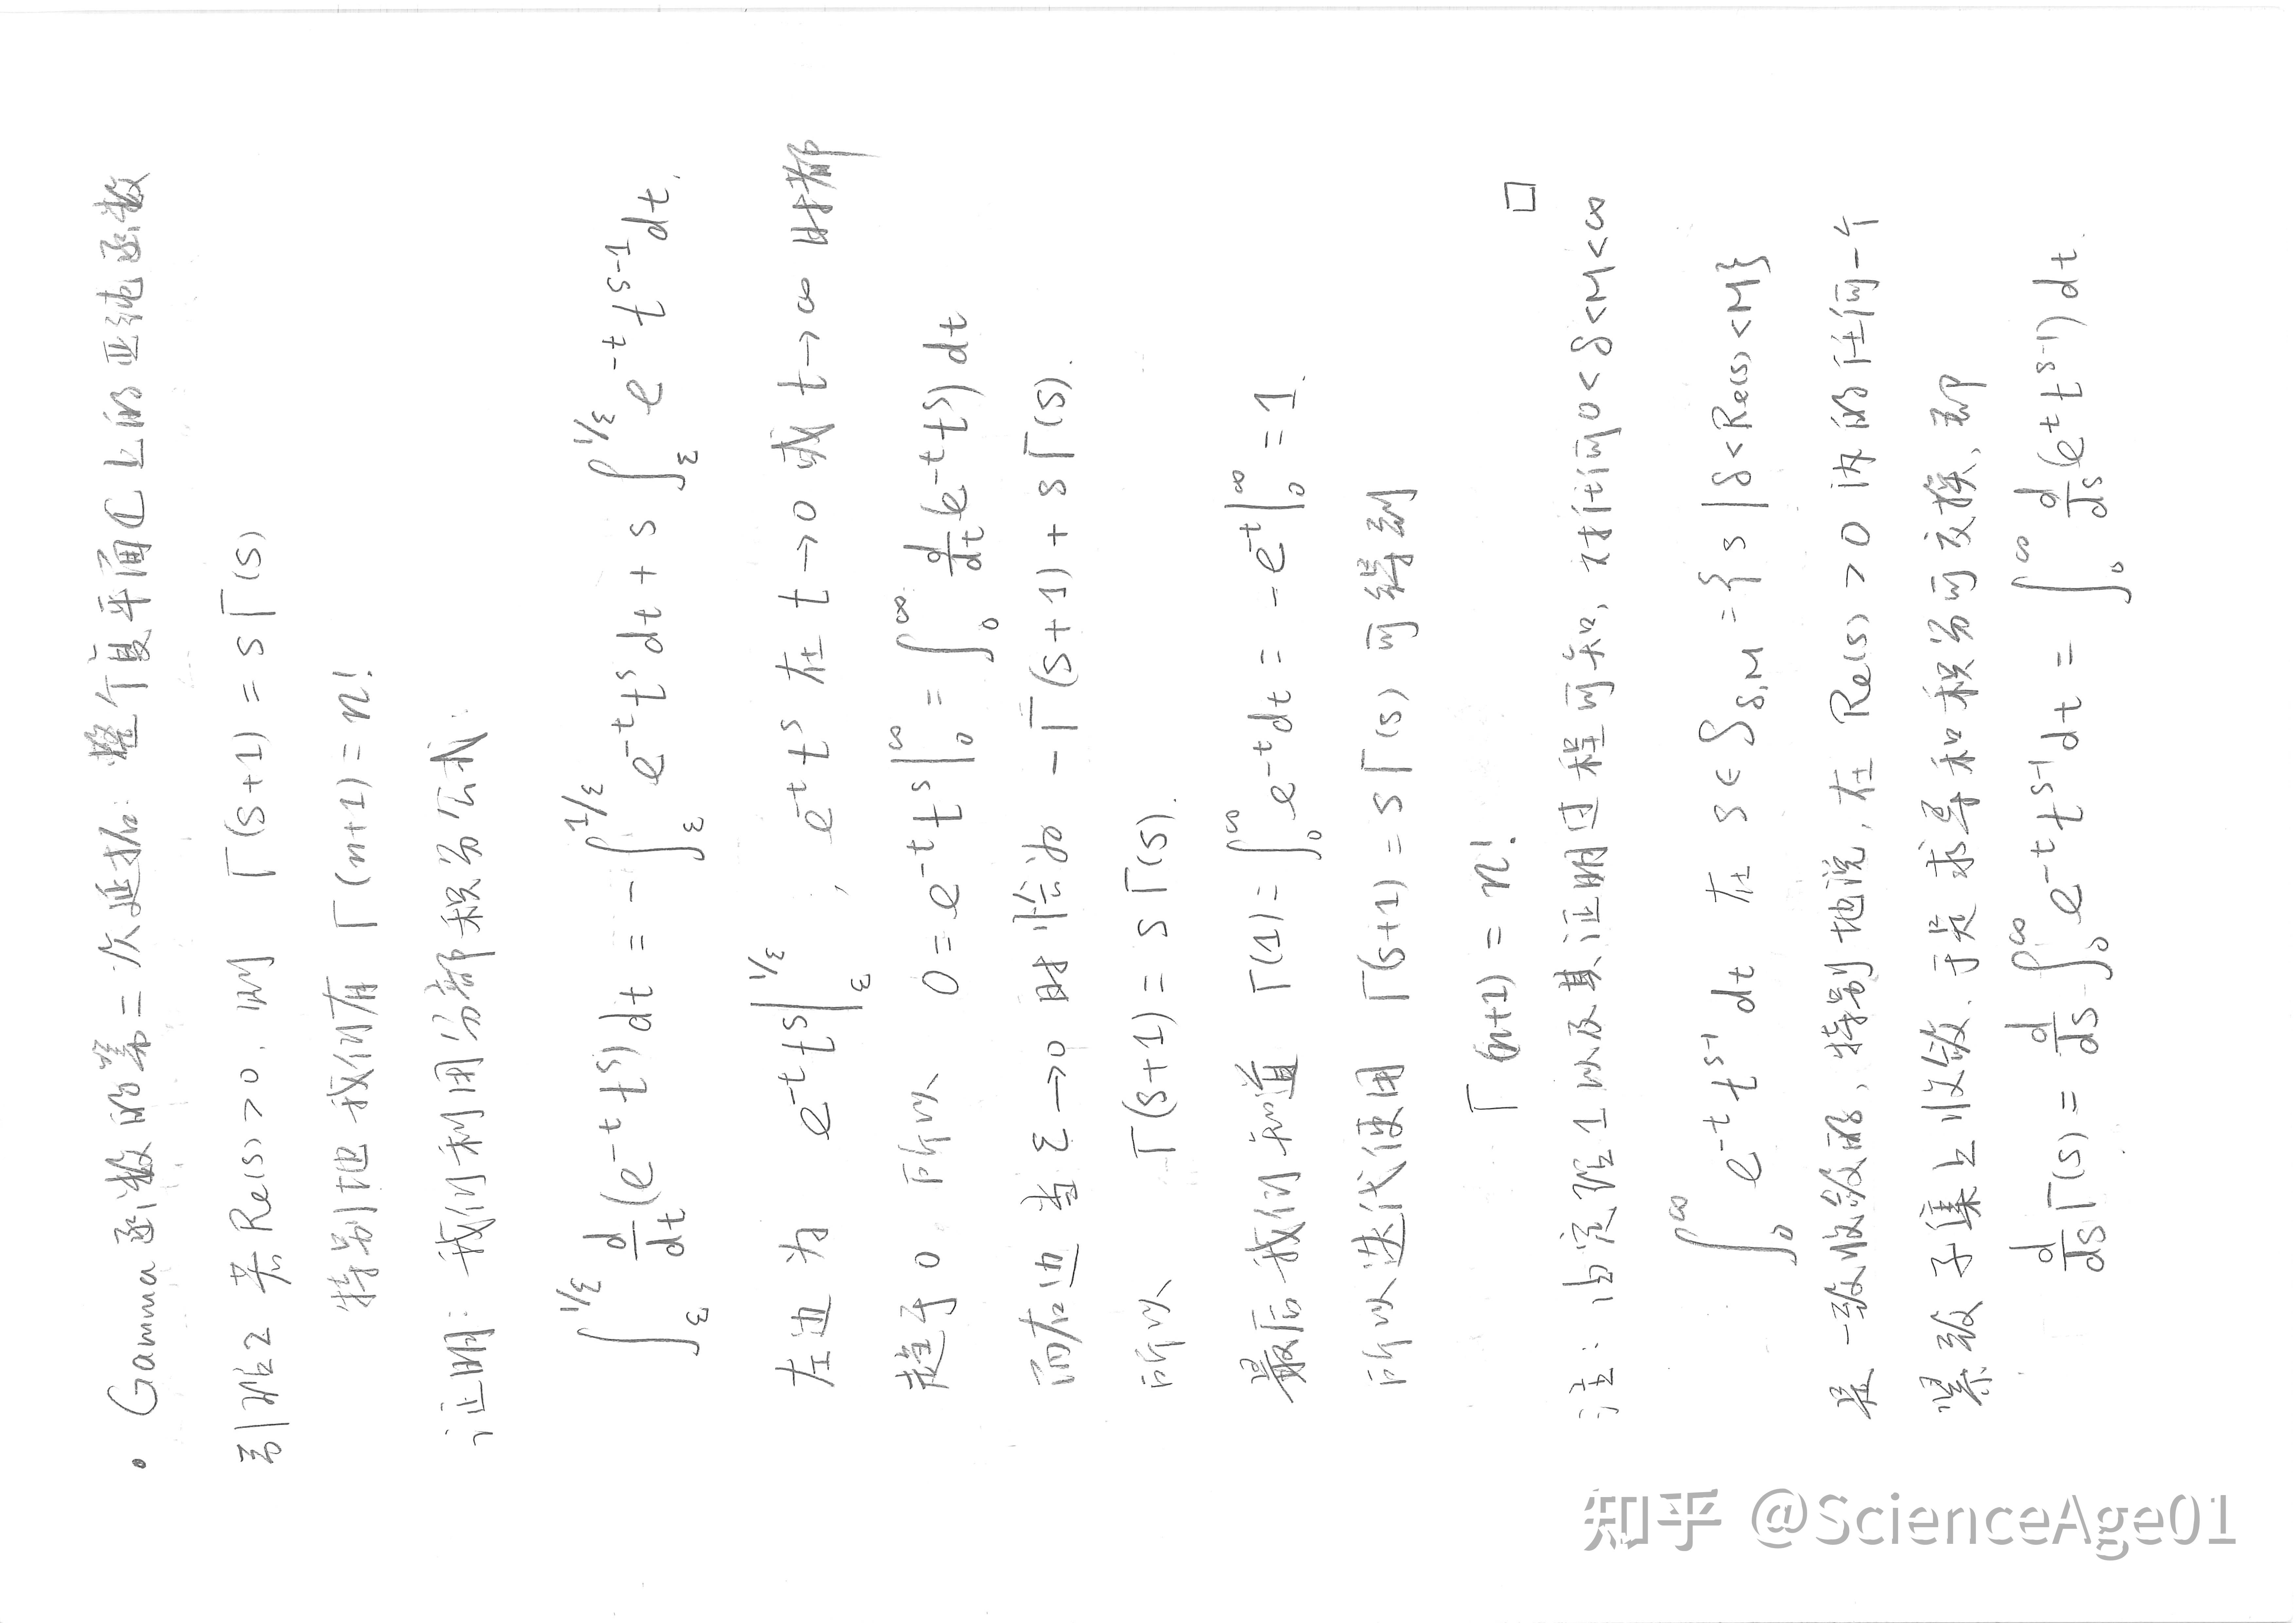 • Gamma函数的第二次延拓: 整个复平面ℂ上的亚纯函数
引理2 若Re(s)>0. 则 Γ(s+1)=sΓ(s)
特别地 我们有 Γ(n+1)=n!
证明: 我们利用分部积分公式:
∫_ε^{1/ε} d/dt(e^{-t}t^s)dt = -∫_ε^{1/ε} e^{-t}t^s dt + s∫_ε^{1/ε} e^{-t}t^{s-1}dt.
左边为 e^{-t}t^s|_ε^{1/ε}, e^{-t}t^s 在 t→0 或 t→∞ 时都
趋于0 所以 0=e^{-t}t^s|_0^∞=∫_0^∞ d/dt(e^{-t}t^s)dt
而右边当ε→0 时恰为 -Γ(s+1)+sΓ(s).
所以 Γ(s+1)=sΓ(s).
最后我们知道 Γ(1)=∫_0^∞ e^{-t}dt=-e^{-t}|_0^∞=1.
所以迭代使用 Γ(s+1)=sΓ(s) 可得到
Γ(n+1)=n! □
注: 由引理1以及其证明过程可知, 对任何0<δ<M<∞
∫_0^∞ e^{-t}t^{s-1}dt 在 s∈S_{δ,M}={s|δ<Re(s)<M}
是一致收敛的, 特别地说, 在 Re(s)>0 内的任何一个
紧致子集上收敛. 于是求导和积分可交换, 即
d/ds Γ(s)=d/ds ∫_0^∞ e^{-t}t^{s-1}dt=∫_0^∞ d/ds(e^{-t}t^{s-1})dt.
知乎 @ScienceAge01